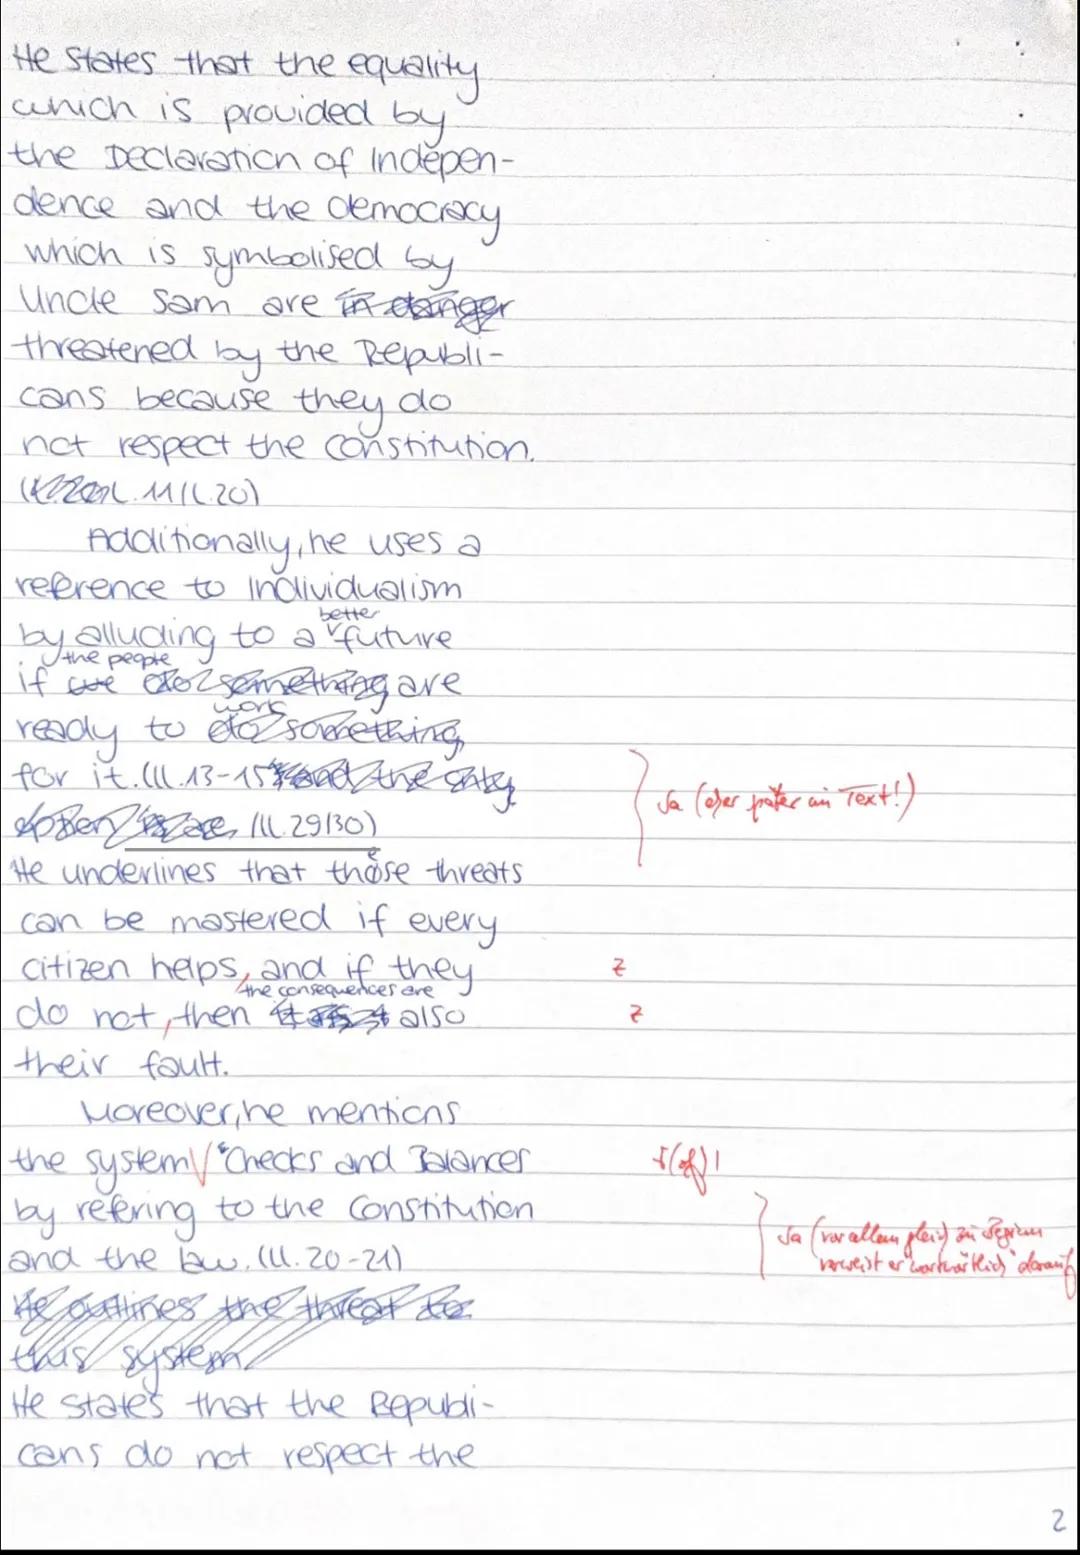 He states that the equality
which is provided by
the Declaration of Indepen-
dence and the democracy
which is symbolised by
Uncle Sam are in danger
threatened by the Republi-
cans because they do
not respect the Constitution.
l. 11/l. 20)
Additionally, he uses a
reference to Individualism
better
by alluding to a future
the people
if we do something are
work
ready to do something
for it. (ll. 13-15 and the only
(ll. 29/30)
Ja (eher später im Text!)
He underlines that those threats
can be mastered if every
citizen helps, and if they
Z
the consequences are
do not, then also
Z
their fault.
Moreover, he mentions
the system "Checks and Balances
(of)!
by refering to the Constitution
and the law. (ll. 20-21)
Ja (vor allem gleich zu Beginn
verweist er "wortwörtlich" darauf
He outlines the threat to
this system
He states that the Republi-
cans do not respect the
2